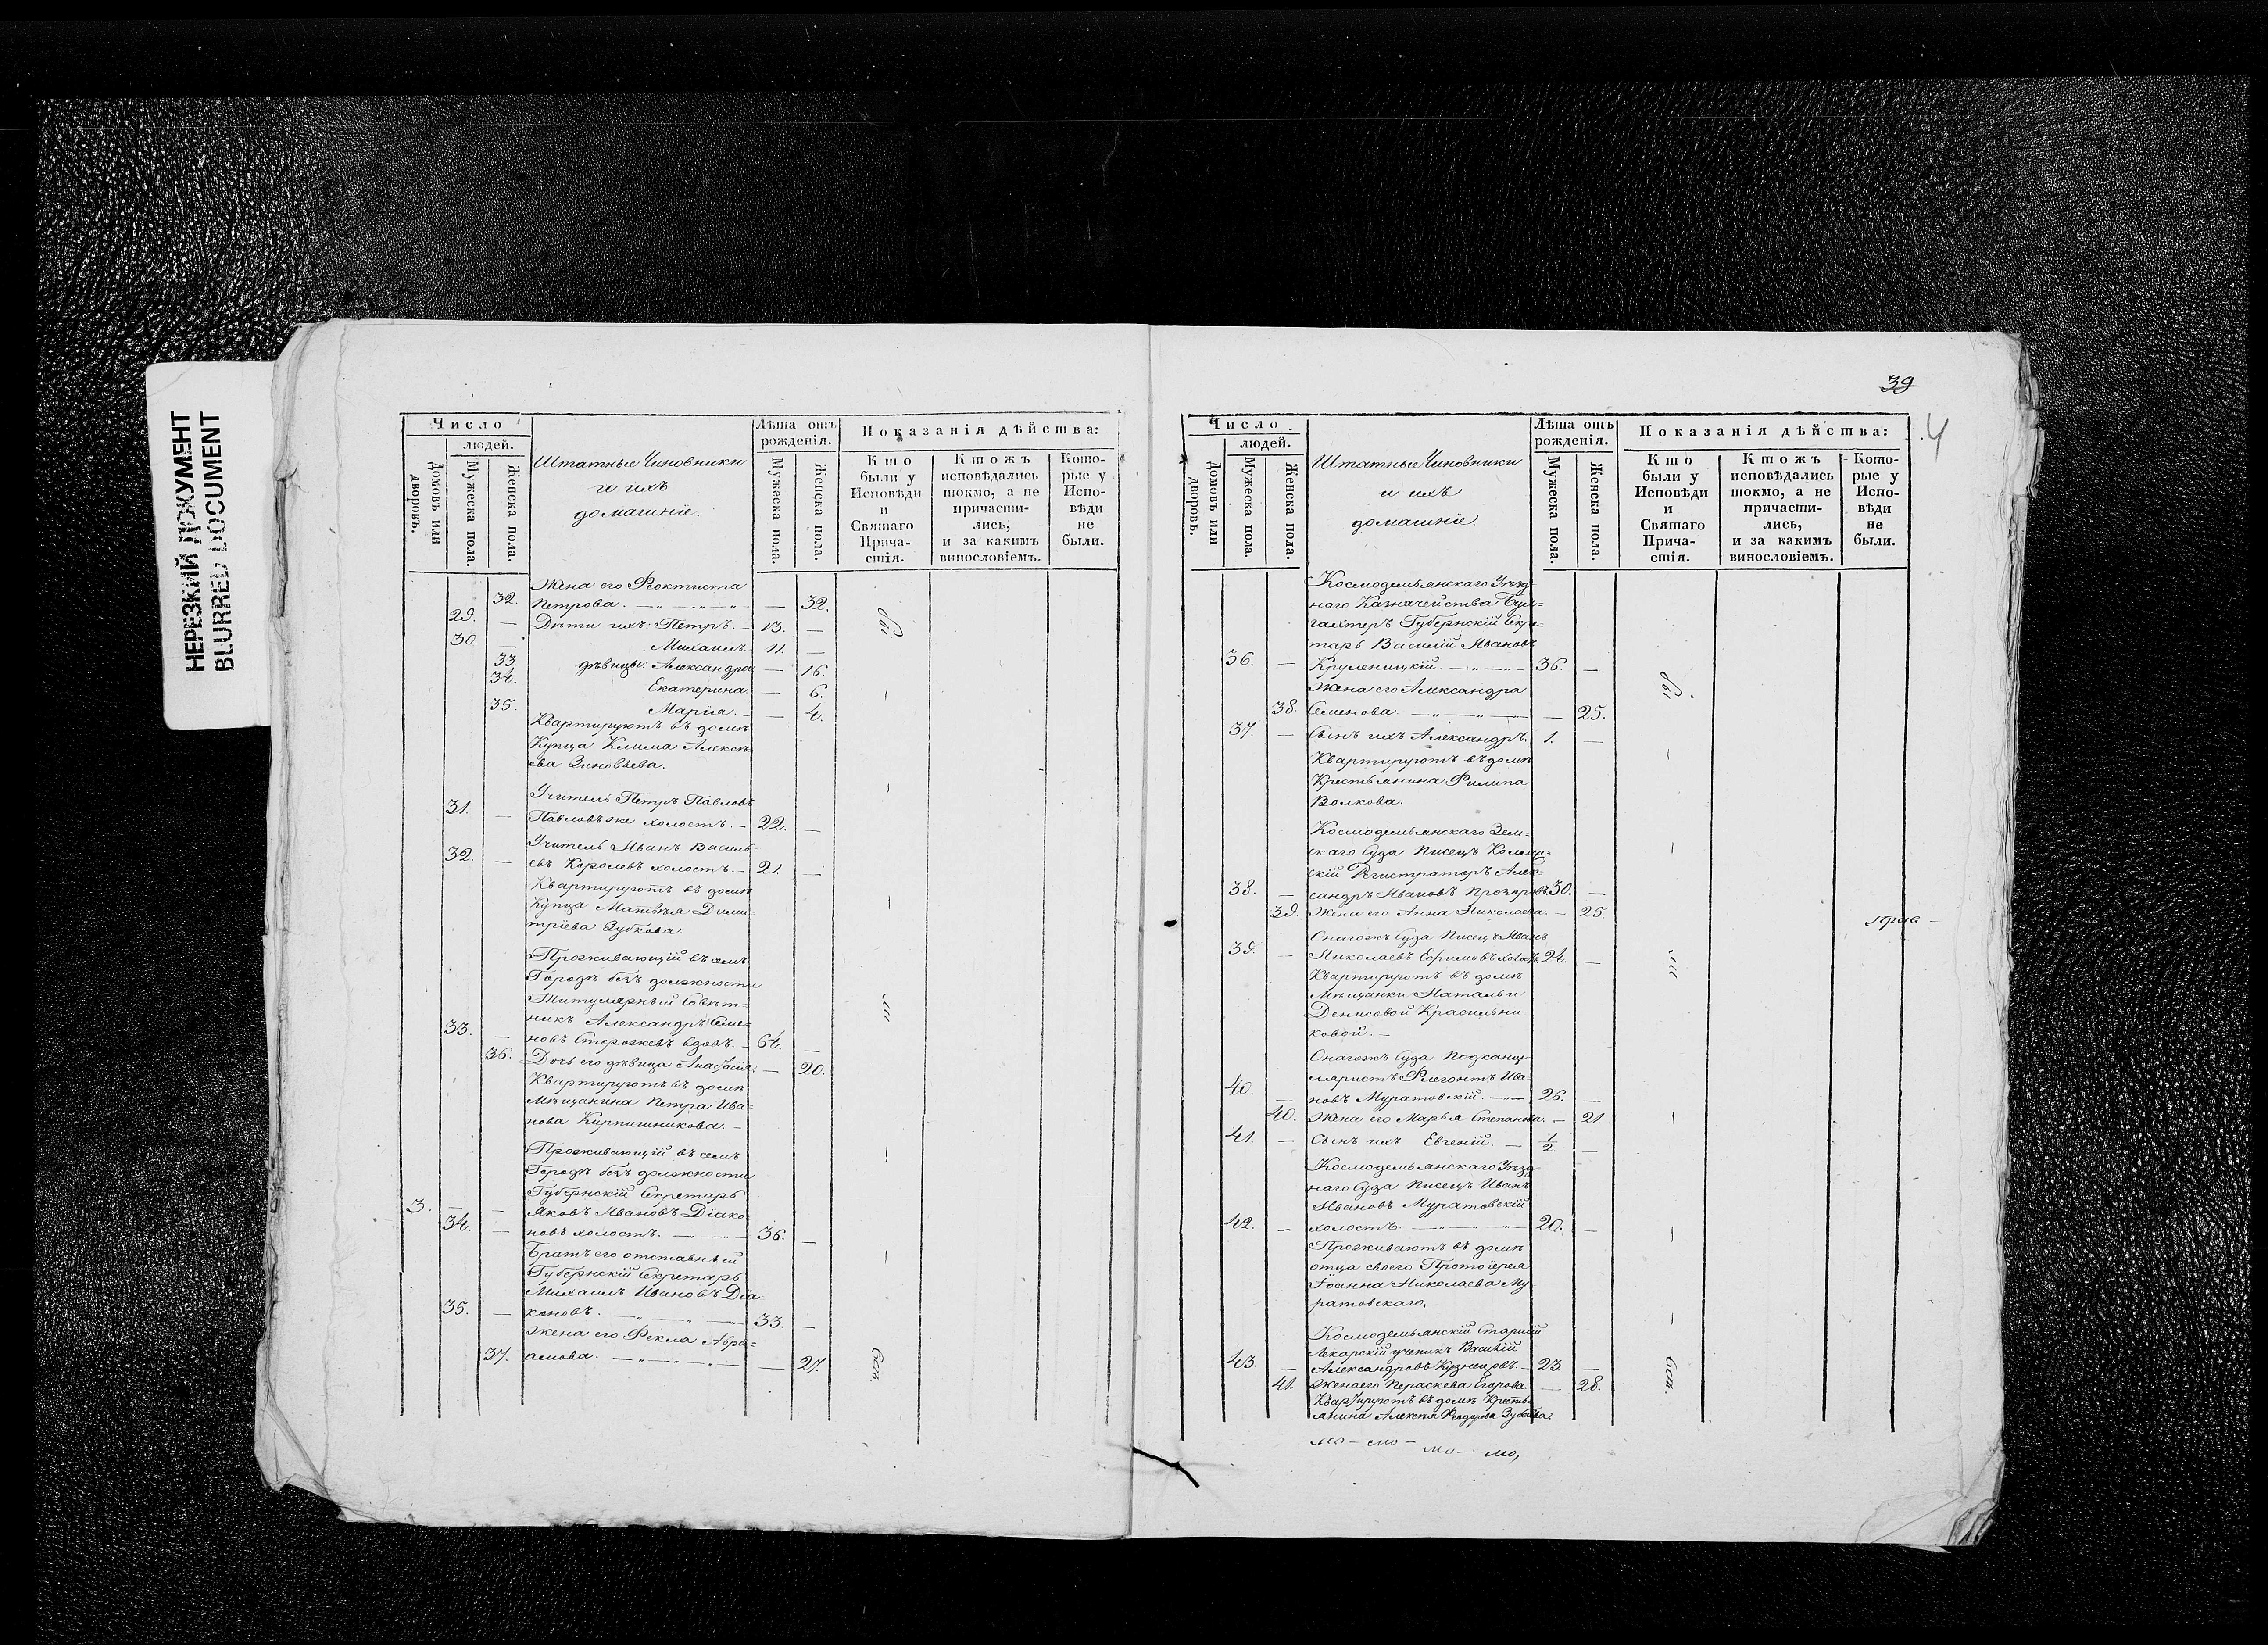 НЕРЕЗКИЙ ДОКУМЕНТ
BLURRED DOCUMENT
Число
людей.
Домовъ или дворовъ.
Мужеска пола.
Женска пола.
Штатные Чиновники
и ихъ
домашніе.
Лѣта отъ рожденія.
Мужеска пола.
Женска пола.
Показанія дѣйства:
Кто были у Исповѣди и Святаго Прича-стія.
Ктожъ исповѣдались токмо, а не причасти-лись, и за какимъ винословіемъ.
Кото-рые у Испо-вѣди не были.
Жена его Ѳеоктиста
32. Петрова. — 32.
29. — Дѣти ихъ: Петръ. — 13. —
30 — Михаилъ. 11. —
33. дѣвицы: Александра — 16.
34. Екатерина — 6.
35. Марія. — 4.
Квартируютъ въ домѣ
Купца Клима Алексѣ-
ева Зиновьева.
Учитель Петръ Павловъ
31. — Павловъ же холостъ. — 22. —
Учитель Иванъ Василь-
32. — евъ Королевъ холостъ. — 21. —
Квартируютъ въ домѣ
Купца Матвѣя Дими-
тріева Зубкова.
Проживающій въ семъ
Городѣ безъ должности
Титулярный Совѣт-
никъ Александръ Семе-
33. — новъ Сторожевъ вдовъ. — 64. —
36. Дочь его дѣвица Анастасія — 20.
Квартируютъ въ домѣ
Мѣщанина Петра Ива-
нова Кирпишникова. —
Проживающій въ семъ
Городѣ безъ должности
Губернскій Секретарь
3. — — Яковъ Ивановъ Діако-
34. — новъ холостъ. — 36. —
Братъ его отставный
Губернскій Секретарь
Михаилъ Ивановъ Діа-
35. — коновъ. — 33. —
Жена его Ѳекла Абра-
37. амова. — 27.
39
4
Число
людей.
Домовъ или дворовъ.
Мужеска пола.
Женска пола.
Штатные Чиновники
и ихъ
домашніе.
Лѣта отъ рожденія.
Мужеска пола.
Женска пола.
Показанія дѣйства:
Кто были у Исповѣди и Святаго Прича-стія.
Ктожъ исповѣдались токмо, а не причасти-лись, и за какимъ винословіемъ.
Кото-рые у Испо-вѣди не были.
Космодемьянскаго Уѣзд-
наго Казначейства Бух-
галтеръ Губернскій Секре-
тарь Василій Ивановъ
36. — Круленицкій. — 36. —
Жена его Александра
38. Семенова. — 25.
37. — Сынъ ихъ Александръ. 1. —
Квартируютъ въ домѣ
Крестьянина Филипа
Волкова.
Космодемьянскаго Зем-
скаго Суда Писецъ Коллеж-
скій Регистраторъ Алек-
38. — сандръ Ивановъ Прозоровъ 30. —
39. Жена его Анна Николаева. — 25.
Онагожъ Суда Писецъ Иванъ
39. — Николаевъ Ефимовъ холостъ 24. —
Квартируютъ въ домѣ
Мѣщанки Натальи
Денисовой Красильни
ковой. —
Онагожъ Суда Подканце-
ляристъ Флегонтъ Ива-
40. — новъ Муратовскій. — 26. —
40. Жена его Марья Степанова. — 21.
41. — Сынъ ихъ Евгеній. — 1/2 —
Космодемьянскаго Уѣзд-
наго Суда Писецъ Иванъ
Ивановъ Муратовскій
42. — холостъ. — 20. —
Проживаютъ въ домѣ
отца своего Протоіерея
Іоанна Николаева Му
ратовскаго.
Космодемьянскій Старшій
Лекарскій ученикъ Василій
43. — Александровъ Кузнецовъ. — 23. —
41. Жена его Пераскева Егорова — 28.
Квартируютъ въ домѣ Кресть-
янина Алексѣя Ѳеодорова